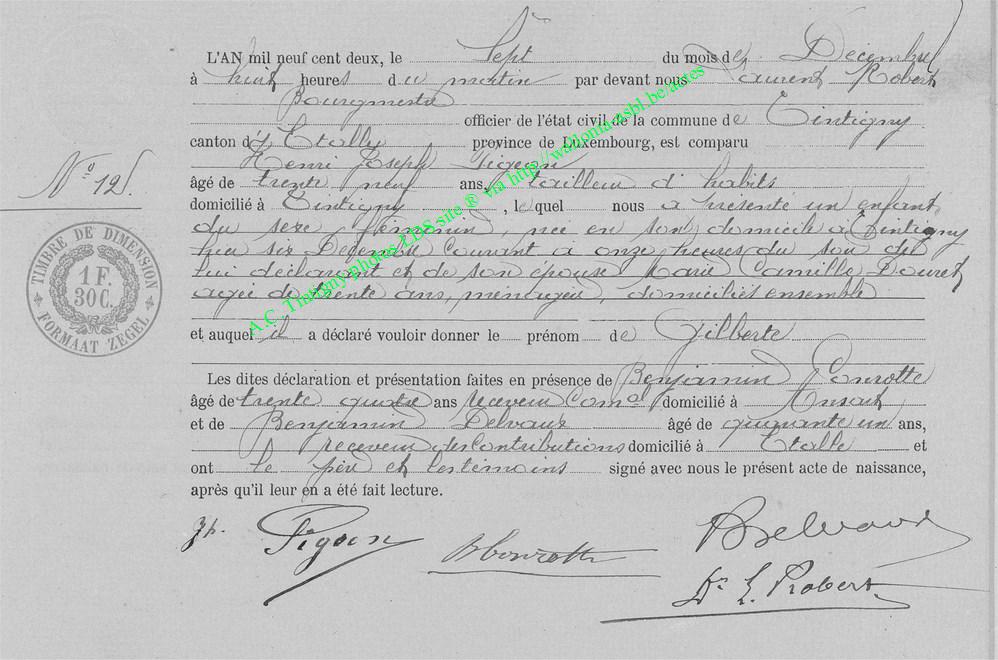 L'AN mil neuf cent deux, le Sept du mois de Décembre
à huit heures du matin par devant nous Laurent Robert
Bourgmestre
officier de l'état civil de la commune de Tintigny
canton d' Etalle province de Luxembourg, est comparu
Henri Joseph Pigeon
N° 125.
âgé de trente neuf ans, tailleur d'habits
domicilié à Tintigny, lequel nous a présenté un enfant
du sexe féminin, née en son domicile à Tintigny
le six Décembre courant à onze heures du soir de
lui déclarant et de son épouse Marie Camille Douret
âgée de trente ans, ménagère, domiciliés ensemble
et auquel il a déclaré vouloir donner le prénom de Gilberte
Les dites déclaration et présentation faites en présence de Benjamin Conrotte
âgé de trente quatre ans receveur comal domicilié à Ansart
et de Benjamin Delvaux âgé de cinquante un ans,
receveur des contributions domicilié à Etalle et
ont le père et les témoins signé avec nous le présent acte de naissance,
après qu'il leur en a été fait lecture.
Pigeon
BConrotte
BDelvaux
Dr L. Robert
TIMBRE DE DIMENSION
1 F.
30 C.
FORMAAT ZEGEL
A.C. Tintigny photos LDS site ® via http://wallonia-asbl.be/actes